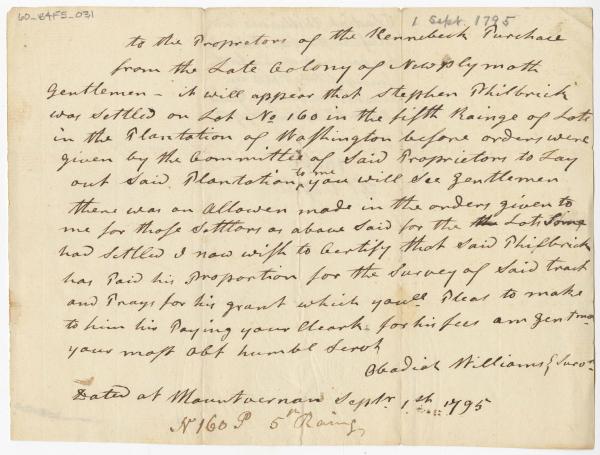 60-B4F5-031
1 Sept. 1795
to the Proprietors of the Kennebeck Purchase
from the Late Colony of Newplymoth
Gentlemen - it will appear that Stephen Philbrick
was settled on Lot No 160 in the fifth Rainge of Lots
in the Plantation of Washington before orders were
given by the Committee of Said Proprietors to Lay
out Said Plantation to me you will See Gentlemen
there was an Allowen made in the orders given to
me for those Settlars as above Said for the Lots Some
had settled I now wish to Certify that said Philbrick
has Paid his Proportion for the Survey of Said tract
and Prays for his grant which youll Pleas to make
to him his Paying your Cleark for his fees am Gentmn
your most obt humbl Servt
Obadiah Williams
Dated at Mountvernan Septr. 1st 1795
N 160 P 5th Raing